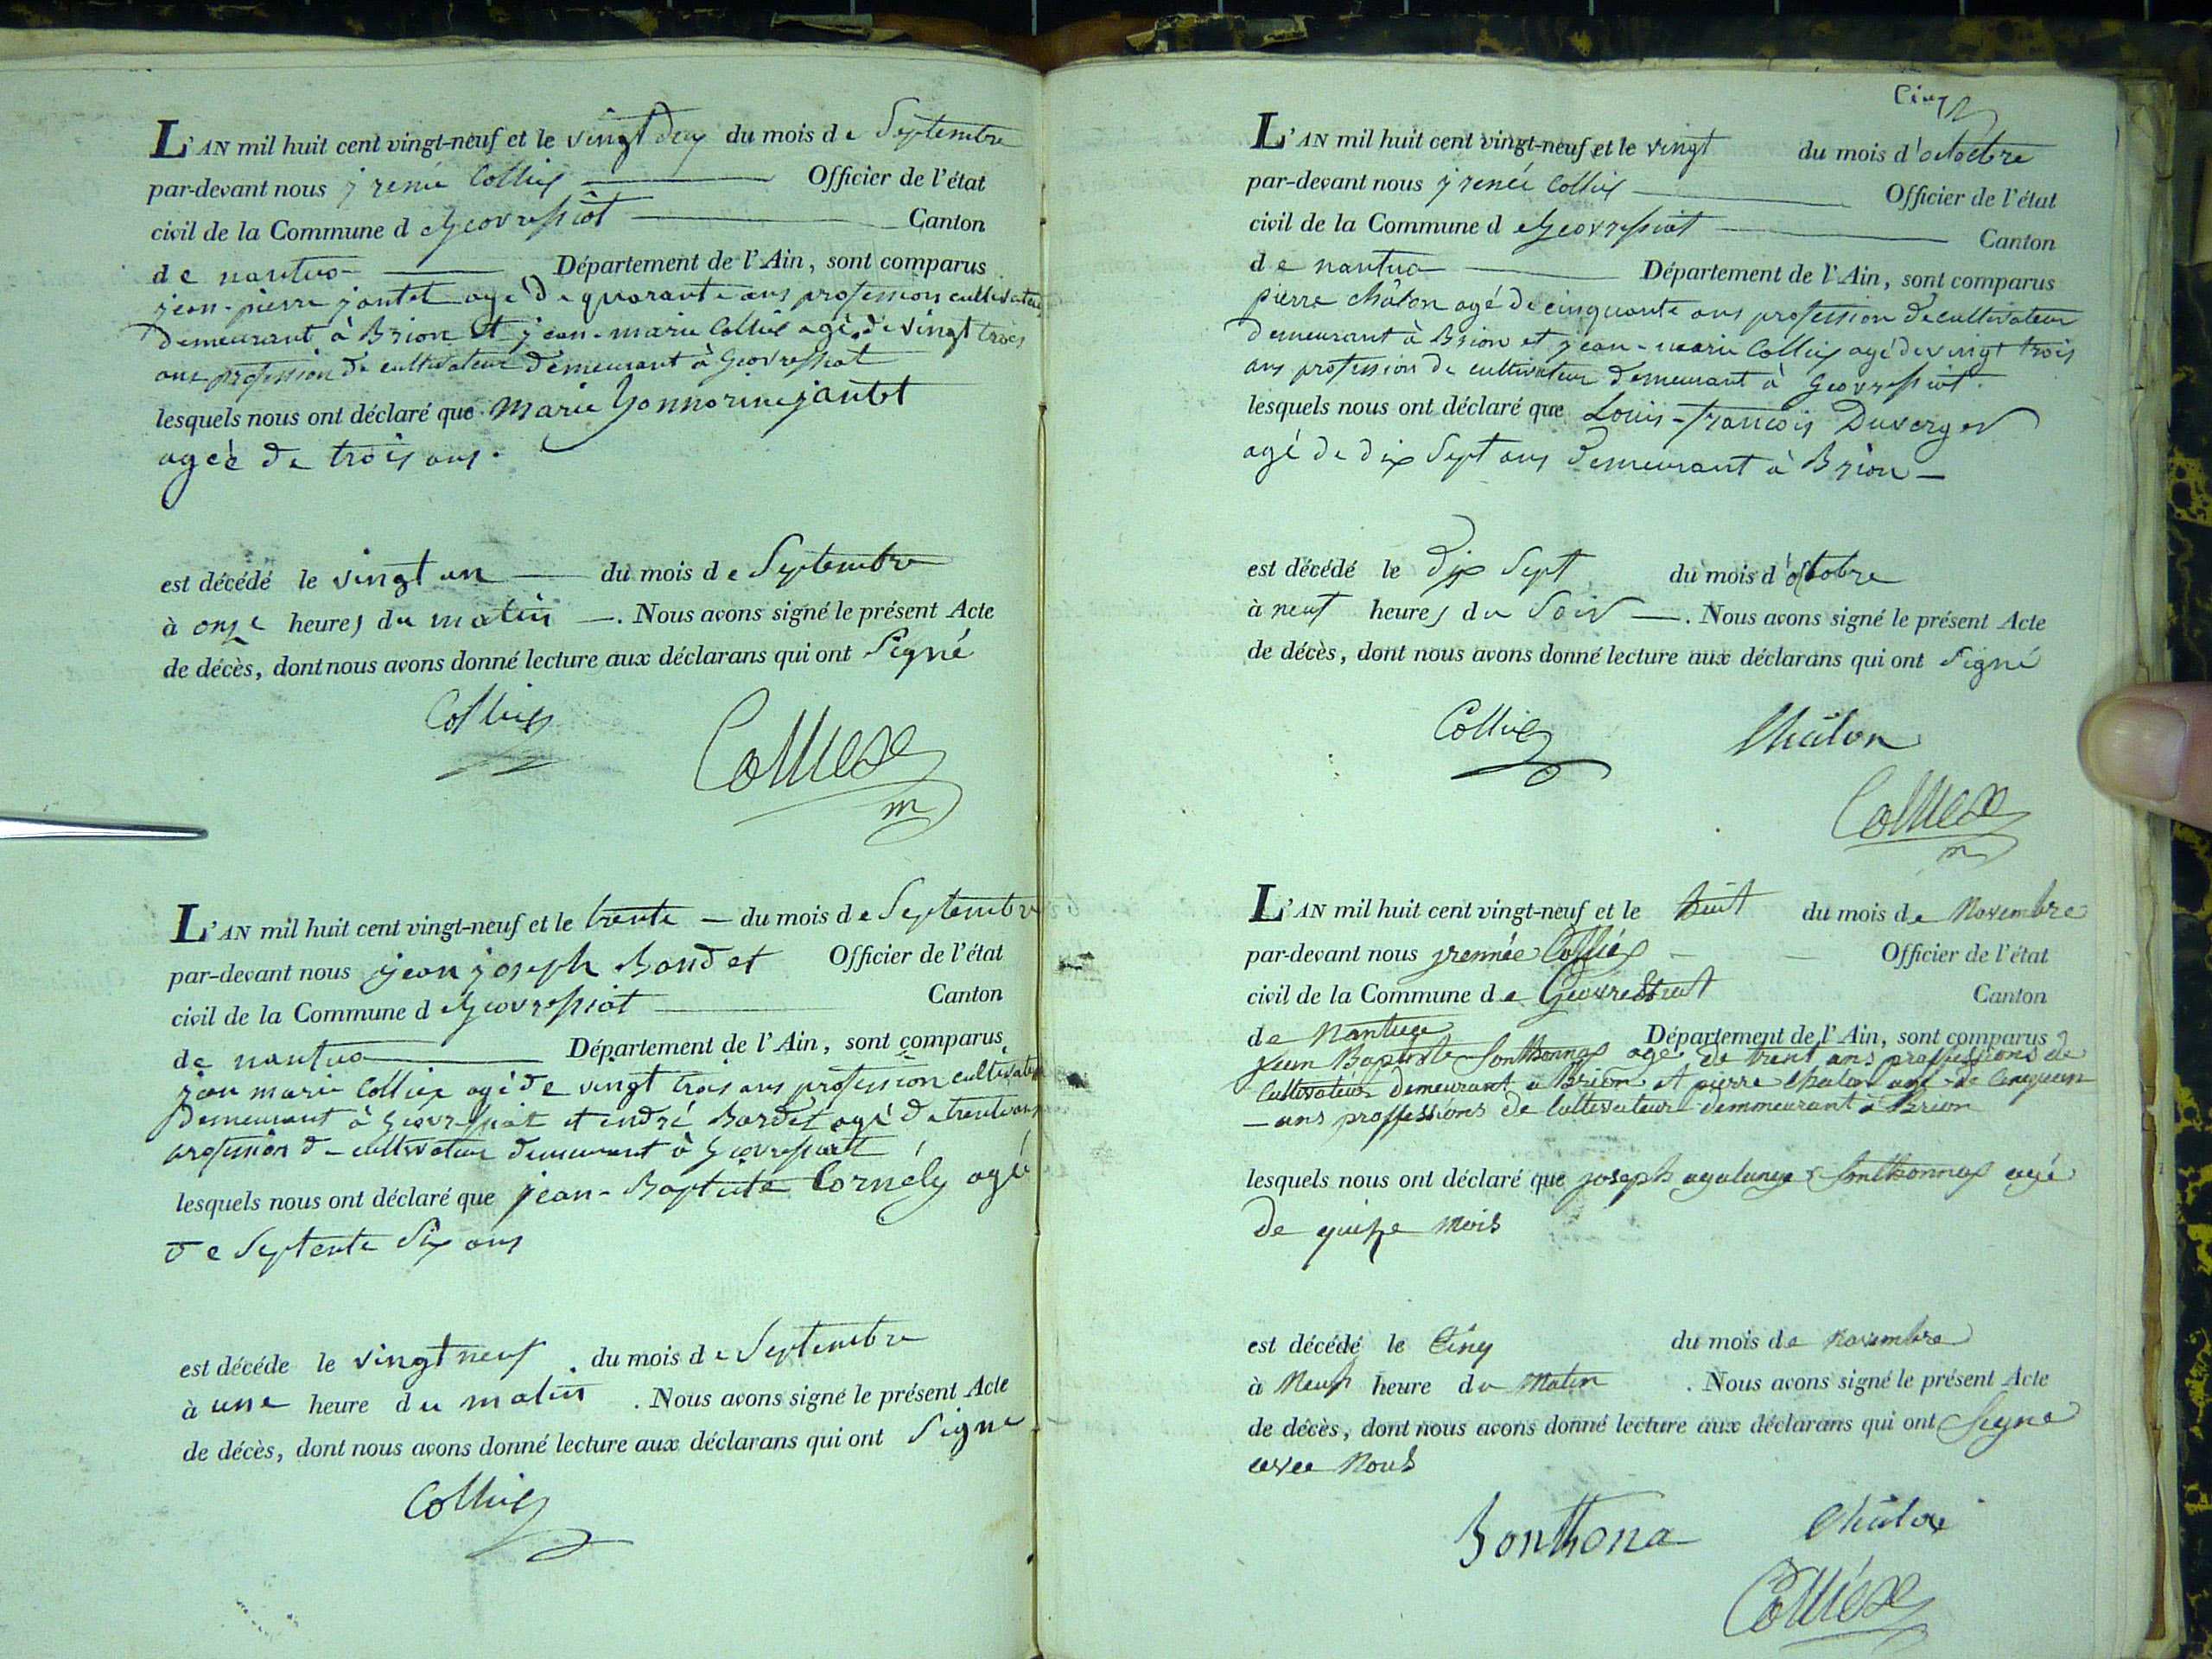 L'AN mil huit cent vingt-neuf et le vingt deux du mois de Septembre
par-devant nous jrenée Colliex Officier de l'état
civil de la Commune d eGeovressiat Canton
de nantua Département de l'Ain, sont comparus
jean-pierre jantet agé de quarante ans profession cultivateur
Demeurant à Brion et jean-marie Colliex agé de vingt trois
ans profession de cultivateur demeurant à Geovressiat
lesquels nous ont déclaré que Marie honnorine jantet
ageé de trois ans.
est décédé le vingt un du mois de Septembre
à onze heures du matin. Nous avons signé le présent Acte
de décès, dont nous avons donné lecture aux déclarans qui ont Signé
Colliex
Colliex
m
L'AN mil huit cent vingt-neuf et le trente du mois de Septembre
par-devant nous jean joseph Bondet Officier de l'état
civil de la Commune d eGeovressiat Canton
de nantua Département de l'Ain, sont comparus
jean marie Colliex agé de vingt trois ans profession cultivateur
Demeurant à Geovressiat et andré Bardet agé de trente ans
profession de cultivateur demeurant à Geovressiat
lesquels nous ont déclaré que jean-Baptiste Cornély agé
de Septente Six ans
est décéde le vingt neuf du mois de Septembre
à une heure du matin. Nous avons signé le présent Acte
de décès, dont nous avons donné lecture aux déclarans qui ont Signé
Colliex
Cinq
L'AN mil huit cent vingt-neuf et le vingt du mois d'octobre
par-devant nous jrenée Colliex Officier de l'état
civil de la Commune d eGeovressiat Canton
de nantua Département de l'Ain, sont comparus
pierre châlon agé de cinquante ans profession de cultivateur
Demeurant à Brion et jean-marie Colliex agé de vingt trois
ans profession de cultivateur demeurant à Geovressiat.
lesquels nous ont déclaré que Louis-françois Duverger
agé de dix Sept ans demeurant à Brion
est décédé le Dix Sept du mois d'octobre
à neuf heures du Soir. Nous avons signé le présent Acte
de décès, dont nous avons donné lecture aux déclarans qui ont Signé
Colliex Châlon
Colliex
m
L'AN mil huit cent vingt-neuf et le huit du mois de Novembre
par-devant nous jrennée Colliéx Officier de l'état
civil de la Commune de Geovressiat Canton
de Nantua Département de l'Ain, sont comparus
Jean Baptiste Sonthonnax agé de trent ans proffessions de
Cultivateur demeurant a Brion et pierre chalon agé de Cinquen
ans proffessions de Cultivateur demmeurant à Brion
lesquels nous ont déclaré que joseph Sonthonnax agé
de quize mois
est décédé le Cinq du mois de novembre
à Neuf heure du Matin. Nous avons signé le présent Acte
de décès, dont nous avons donné lecture aux déclarans qui ont Signe
avec Nous
Sonthona Châlon
Colliéx